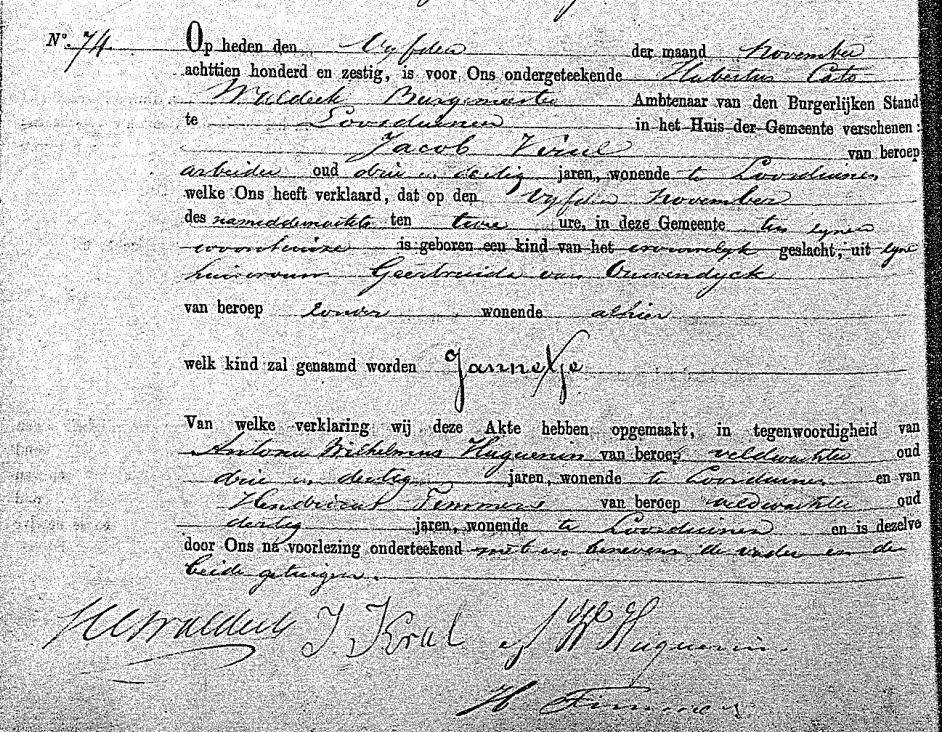 N° 74. Op heden den Vyfden der maand November
achttien honderd en zestig, is voor Ons ondergeteekende Hubertus Cato
Waldeck Burgmeester Ambtenaar van den Burgerlijken Stand
te Loosduinen in het Huis der Gemeente verschenen:
Jacob Kral van beroep
arbeider oud drie en dertig jaren, wonende te Loosduinen
welke Ons heeft verklaard, dat op den Vyfden November
des namiddernachts ten twee ure, in deze Gemeente ten zynen
woonhuize is geboren een kind van het vrouwelyk geslacht, uit zyne
huisvrouw Geertruida van
van beroep zonder wonende alhier
welk kind zal genaamd worden Jannetje
Van welke verklaring wij deze Akte hebben opgemaakt, in tegenwoordigheid van
Antonie Wilhelmus Huguenin van beroep veldwachter oud
drie en dertig jaren, wonende te Loosduinen en van
Timmers van beroep veldwachter oud
dertig jaren, wonende te Loosduinen en is dezelve
door Ons na voorlezing onderteekend met en benevens de vader en de
beide getuigen.
HCWaldeck J Kral Huguenin.
H Timmers